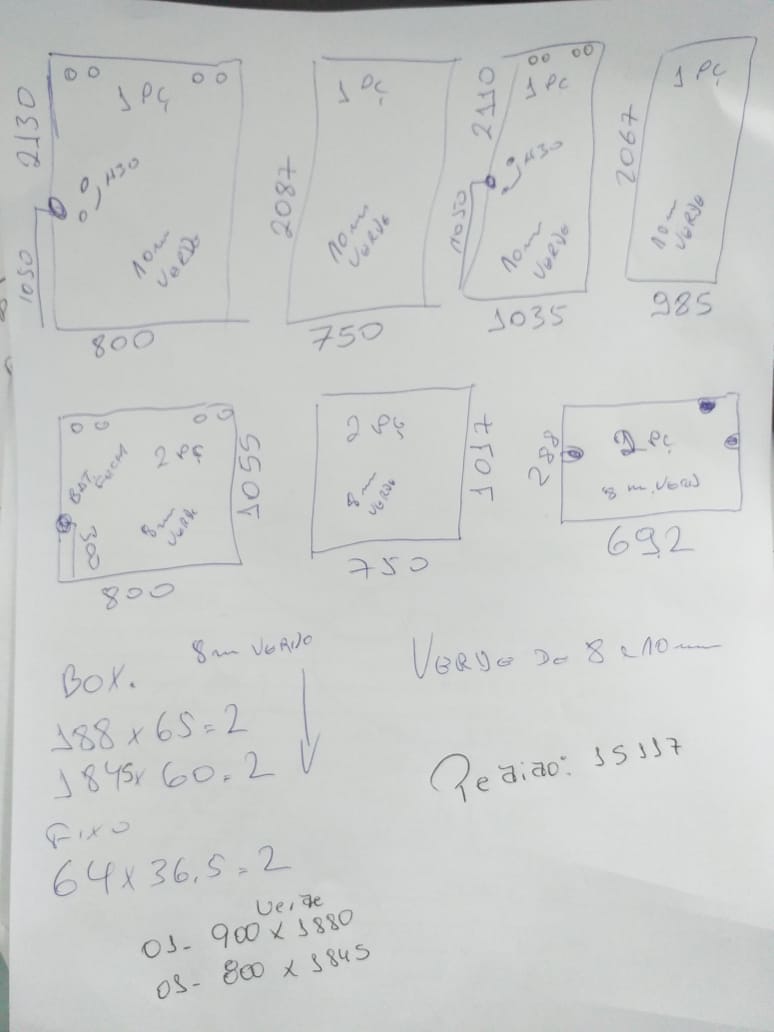 2130
1 PÇ
H30
1050
10mm
VERDE
800
1 PÇ
2087
10mm
VERDE
750
2110
1 PÇ
H30
1050
10mm
VERDE
1035
1 PÇ
2067
10mm
VERDE
985
2 PÇ
1055
BAT
8mm
VERDE
800
2 PÇ
1017
8mm
VERDE
750
288
2 PÇ
8 m. VERD
692
BOX.
8mm VERDE
188 x 65 = 2
1845 x 60 = 2
FIXO
64 x 36,5 = 2
VERDE DE 8 e 10mm
Pedido: 15117
Verde
01- 900 x 1880
01- 800 x 1845